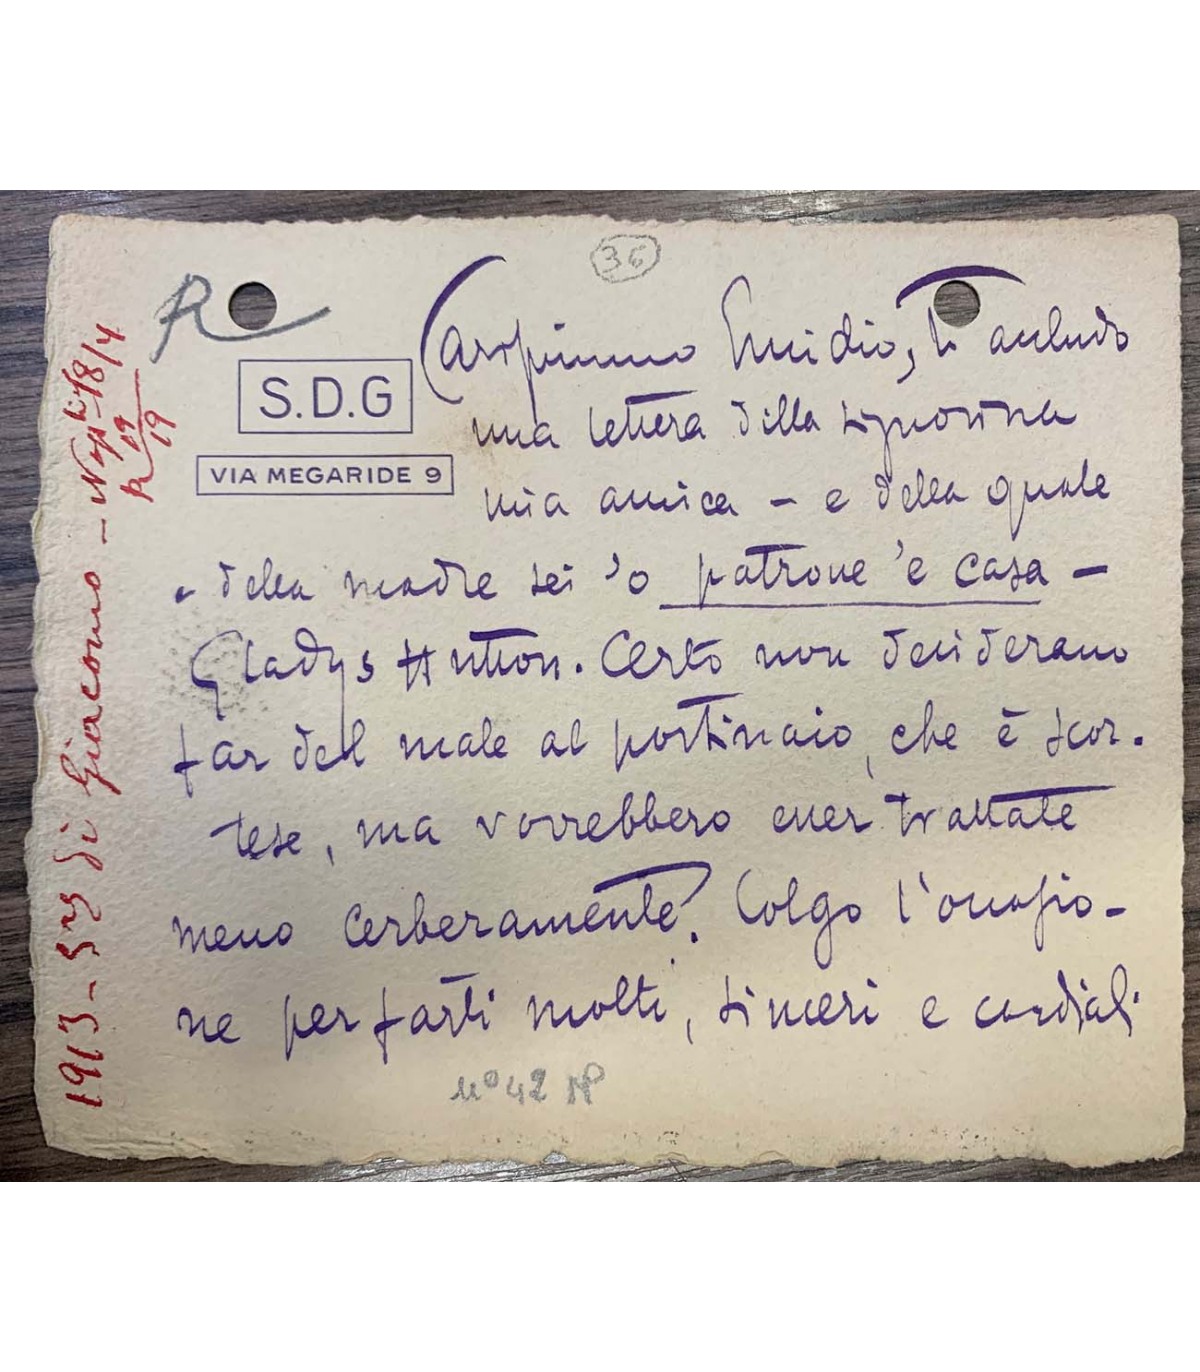 36
R
S.D.G
VIA MEGARIDE 9
Carissimo Emidio, ti accludo
una lettera della signorina
mia amica – e della quale
e della madre sei 'o patrone 'e casa –
Gladys Hutton. Certo non desiderano
far del male al portinaio, che è scor-
tese, ma vorrebbero esser trattate
meno cerberamente. Colgo l'occasio-
ne per farti molti, sinceri e cordiali
n° 42
1913 - Di Giacomo - Napoli 18/4
R 19